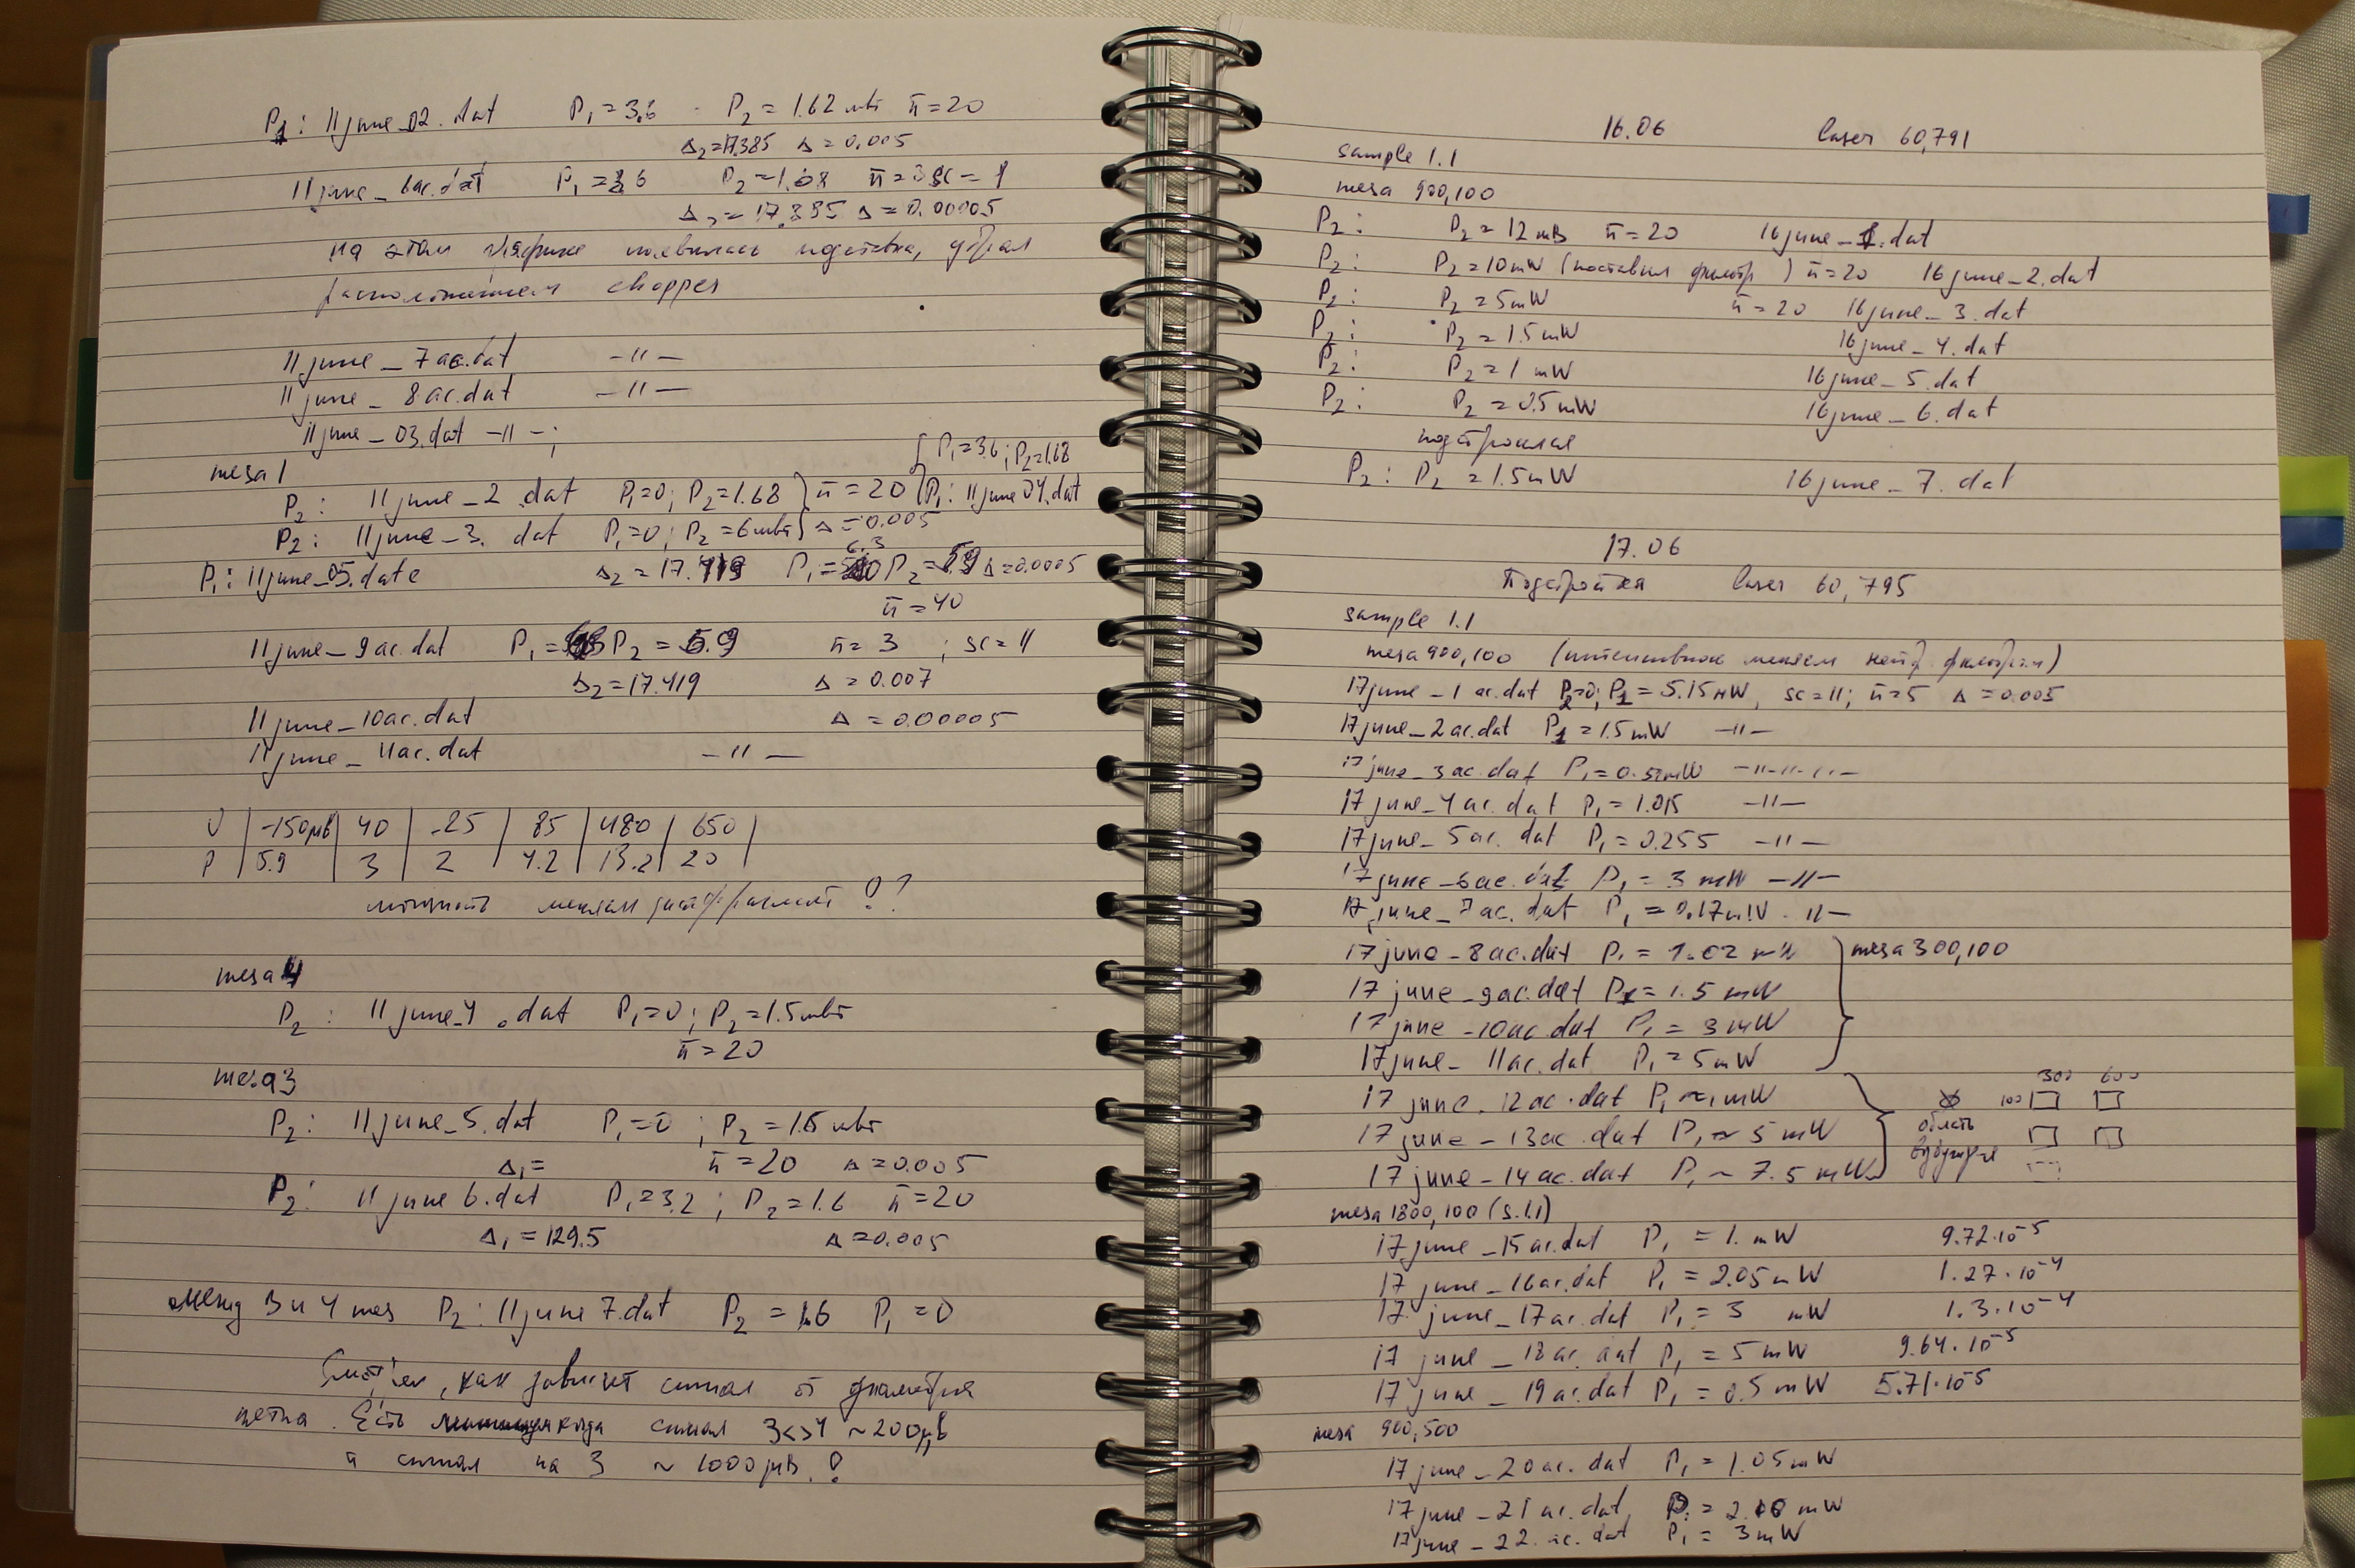 P1: 11june_02.dat P1=3,6 - P2=1.62 мвт n̄=20
Δ2=17.385 Δ=0.005
11june_6ac.dat P1=3.6 P2=1.68 n̄=3 sc=1
Δ2=17.385 Δ=0.00005
на этом графике появилась подставка, убрал
расположением chopper
11june_7ac.dat -11-
11june_8ac.dat -11-
11june_03.dat -11-;
mesa 1
[P1=3.6; P2=1.68
P2: 11june_2.dat P1=0; P2=1.68 } n̄=20 [P1: 11june04.dat
P2: 11june_3.dat P1=0; P2=6мвт } Δ=0.005
P1: 11june_05.date Δ2=17.419 P1=6.3 P2=5.9 Δ=0.0005
n̄=40
11june_9ac.dat P2=5.9 n̄=3; sc=11
Δ2=17.419 Δ=0.007
11june_10ac.dat Δ=0.00005
11june_11ac.dat -11-
U | -150μв | 40 | -25 | 85 | 480 | 650 |
P | 5.9 | 3 | 2 | 4.2 | 13.2 | 20 |
мощность меняли !?
mesa 4
P2: 11june_4.dat P1=0; P2=1.5мвт
n̄=20
mesa 3
P2: 11june_5.dat P1=0; P2=1.5 мвт
Δ1= n̄=20 Δ=0.005
P2: 11june6.dat P1=3.2; P2=1.6 n̄=20
Δ1=129.5 Δ=0.005
между 3 и 4 mes P2: 11june7.dat P2=1.6 P1=0
Смотрел, как зависит сигнал от диаметра
пятна. Есть когда сигнал 3<>4 ~200μв
и сигнал на 3 ~ 1000μв.!
16.06 laser 60,791
sample 1.1
mesa 900,100
P2: P2=12мВ n̄=20 16june_1.dat
P2: P2=10mW (поставил фильтр) n̄=20 16june_2.dat
P2: P2=5mW n̄=20 16june_3.dat
P2: P2=1.5mW 16june_4.dat
P2: P2=1 mW 16june_5.dat
P2: P2=0.5mW 16june_6.dat
подстроился
P2: P2=1.5mW 16june_7.dat
17.06
Подстройка laser 60,795
sample 1.1
mesa 900,100 (интенсивность меняем нейтр. фильтрами)
17june_1ac.dat P2=0; P1=5.15mW, sc=11; n̄=5 Δ=0.005
17june_2ac.dat P1=1.5mW -11-
17june_3ac.dat P1=0.52mW -11-11-11-
17june_4ac.dat P1=1.015 -11-
17june_5ac.dat P1=0.255 -11-
17june_6ac.dat P1=3 mW -11-
17june_7ac.dat P1=0.17mW -11-
17june_8ac.dat P1=1.02 mW } mesa 300,100
17june_9ac.dat P1=1.5 mW
17june_10ac.dat P1=3 mW
17june_11ac.dat P1=5mW
300 600
17june_12ac.dat P1~1mW 100
17june_13ac.dat P1~5 mW область
17june_14ac.dat P1~7.5 mW
mesa 1800,100 (s.1.1)
17june_15ac.dat P1=1. mW 9.72·10⁻⁵
17june_16ac.dat P1=2.05mW 1.27·10⁻⁴
17june_17ac.dat P1=3 mW 1.3·10⁻⁴
17june_18ac.dat P1=5 mW 9.64·10⁻⁵
17june_19ac.dat P1=0.5 mW 5.71·10⁻⁵
mesa 900,500
17june_20ac.dat P1=1.05mW
17june_21ac.dat P1=2.10 mW
17june_22.ac.dat P1=3mW